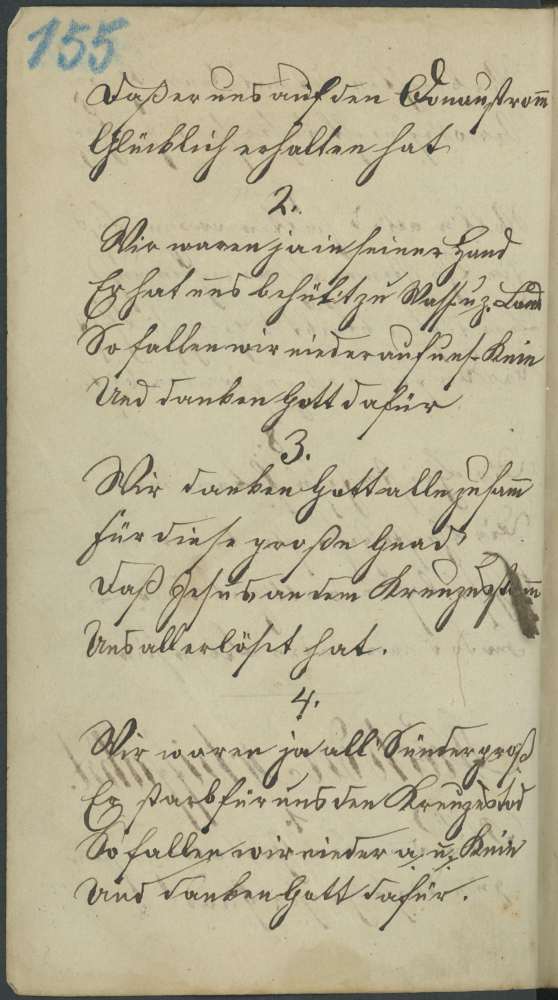 155
Daß er uns auf den Donaustrom̅
Glücklich erhalten hat
2.
Wir waren ja in seiner Hand
Er hat uns behüt't zu Wass. u. z. Land
So fallen wir nieder auf uns. Knie
Und danken Gott dafür
3.
Wir danken Gott alle zusam̅
Für diese große Gnad
Daß Jesus an dem Kreuzesstam̅
Uns all erlöset hat.
4.
Wir waren ja all Sünder groß
Er starb für uns den Kreuzestod
So fallen wir nieder a. u. Knie
Und danken Gott dafür.